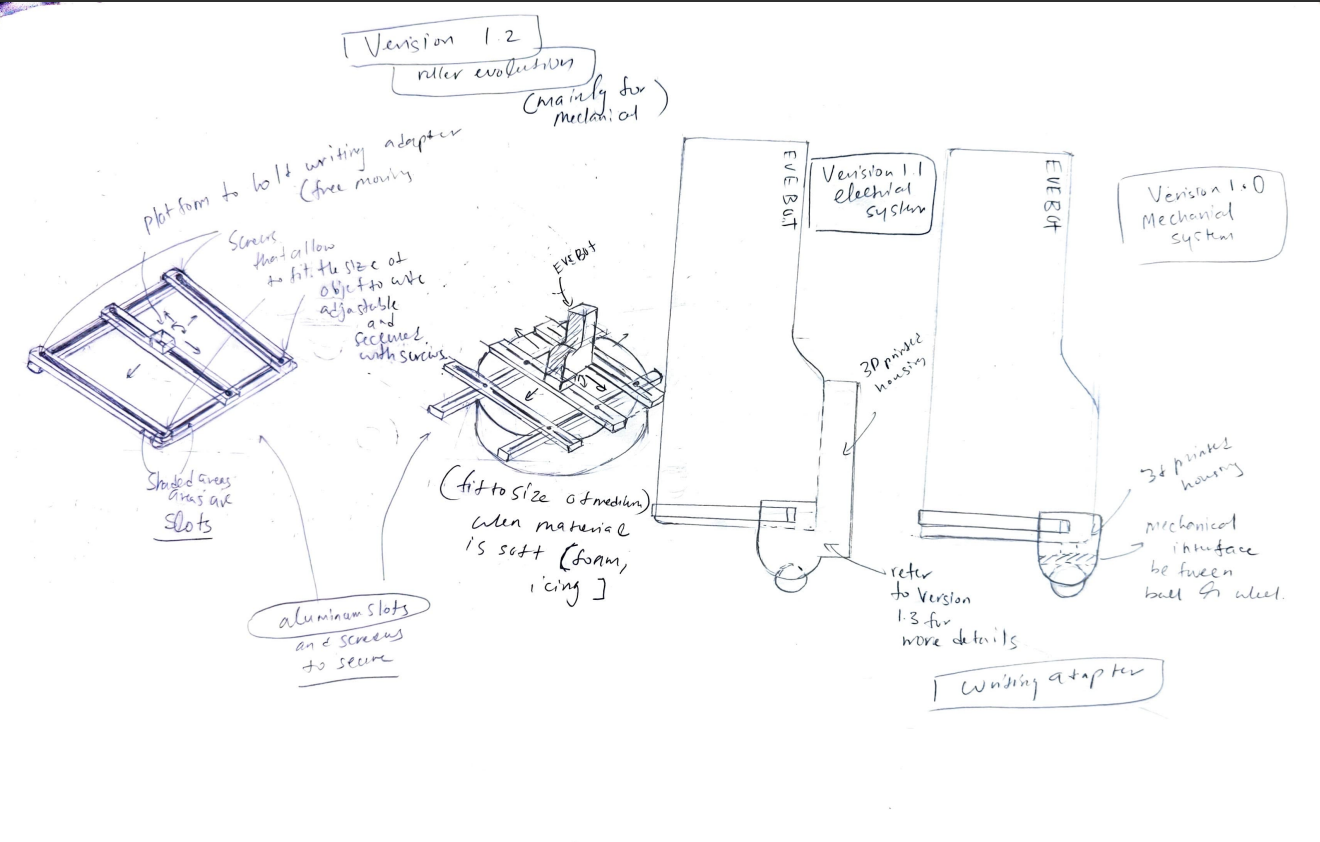 Version 1.2
ruller evolution
(mainly for
mechanical)
platform to hold writing adapter
(free moving
Screws
that allow
to fit the size of
object to write
adjastable
and
secured
with screws.
EVEBOT
Shaded areas
areas are
slots
(fit to size of medium)
when material
is soft (foam,
icing]
aluminum slots
and screws
to secure
EVEBOT
Version 1.1
electrical
system
3D printed
housing
refer
to Version
1.3 for
more details
EVEBOT
Version 1.0
Mechanical
system
3d printed
housing
mechanical
interface
between
ball & wheel.
writing adapter